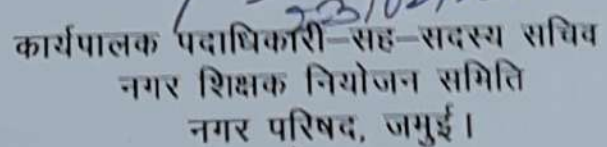 कार्यपालक पदाधिकारी–सह–सदस्य सचिव
नगर शिक्षक नियोजन समिति
नगर परिषद, जमुई।